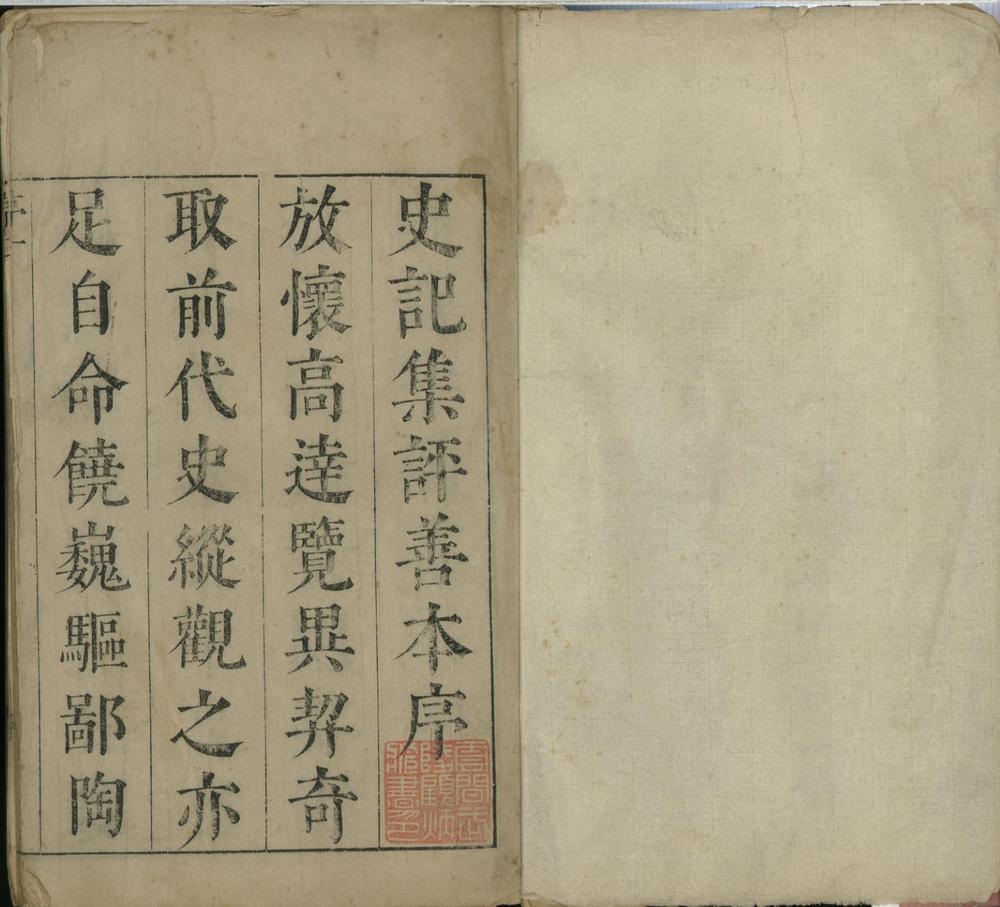 史記集評善本序
放懷高達覽異契奇
取前代史縱觀之亦
足自命饒巍驅鄙陶